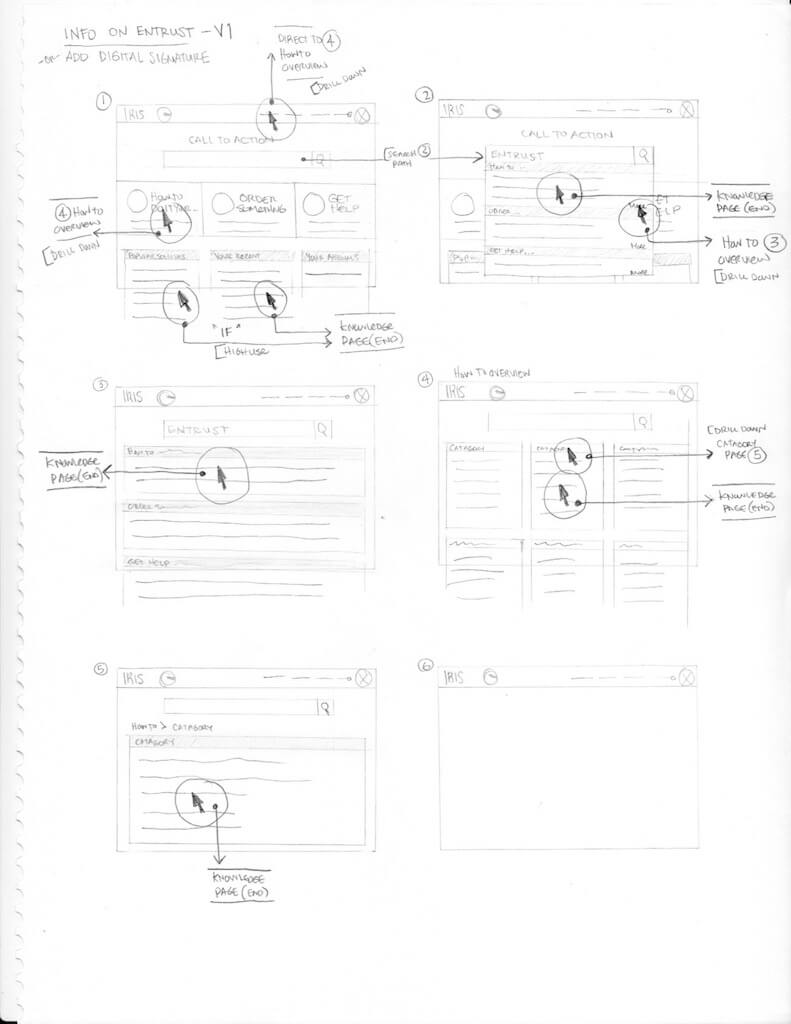 INFO ON ENTRUST - V1
-OR- ADD DIGITAL SIGNATURE
DIRECT TO 4
HOW TO
OVERVIEW
[DRILL DOWN
1
IRIS
CALL TO ACTION
[SEARCH 2
PATH
HOW TO
ORDER
SOMETHING
GET
HELP
4 HOW TO
OVERVIEW
[DRILL DOWN
POPULAR
YOUR RECENT
YOUR ACCOUNT
"IF"
[HIGH USE
KNOWLEDGE
PAGE (END)
2
IRIS
CALL TO ACTION
ENTRUST
HOW TO
ORDER
GET HELP...
MORE
MORE
MORE
ET
ELP
KNOWLEDGE
PAGE (END)
HOW TO 3
OVERVIEW
[DRILL DOWN
3
IRIS
ENTRUST
HOW TO
ORDER
GET HELP
KNOWLEDGE
PAGE (END)
4
HOW TO OVERVIEW
IRIS
CATAGORY
[DRILL DOWN
CATAGORY
PAGE 5
KNOWLEDGE
PAGE (END)
5
IRIS
HOW TO > CATAGORY
CATAGORY
KNOWLEDGE
PAGE (END)
6
IRIS